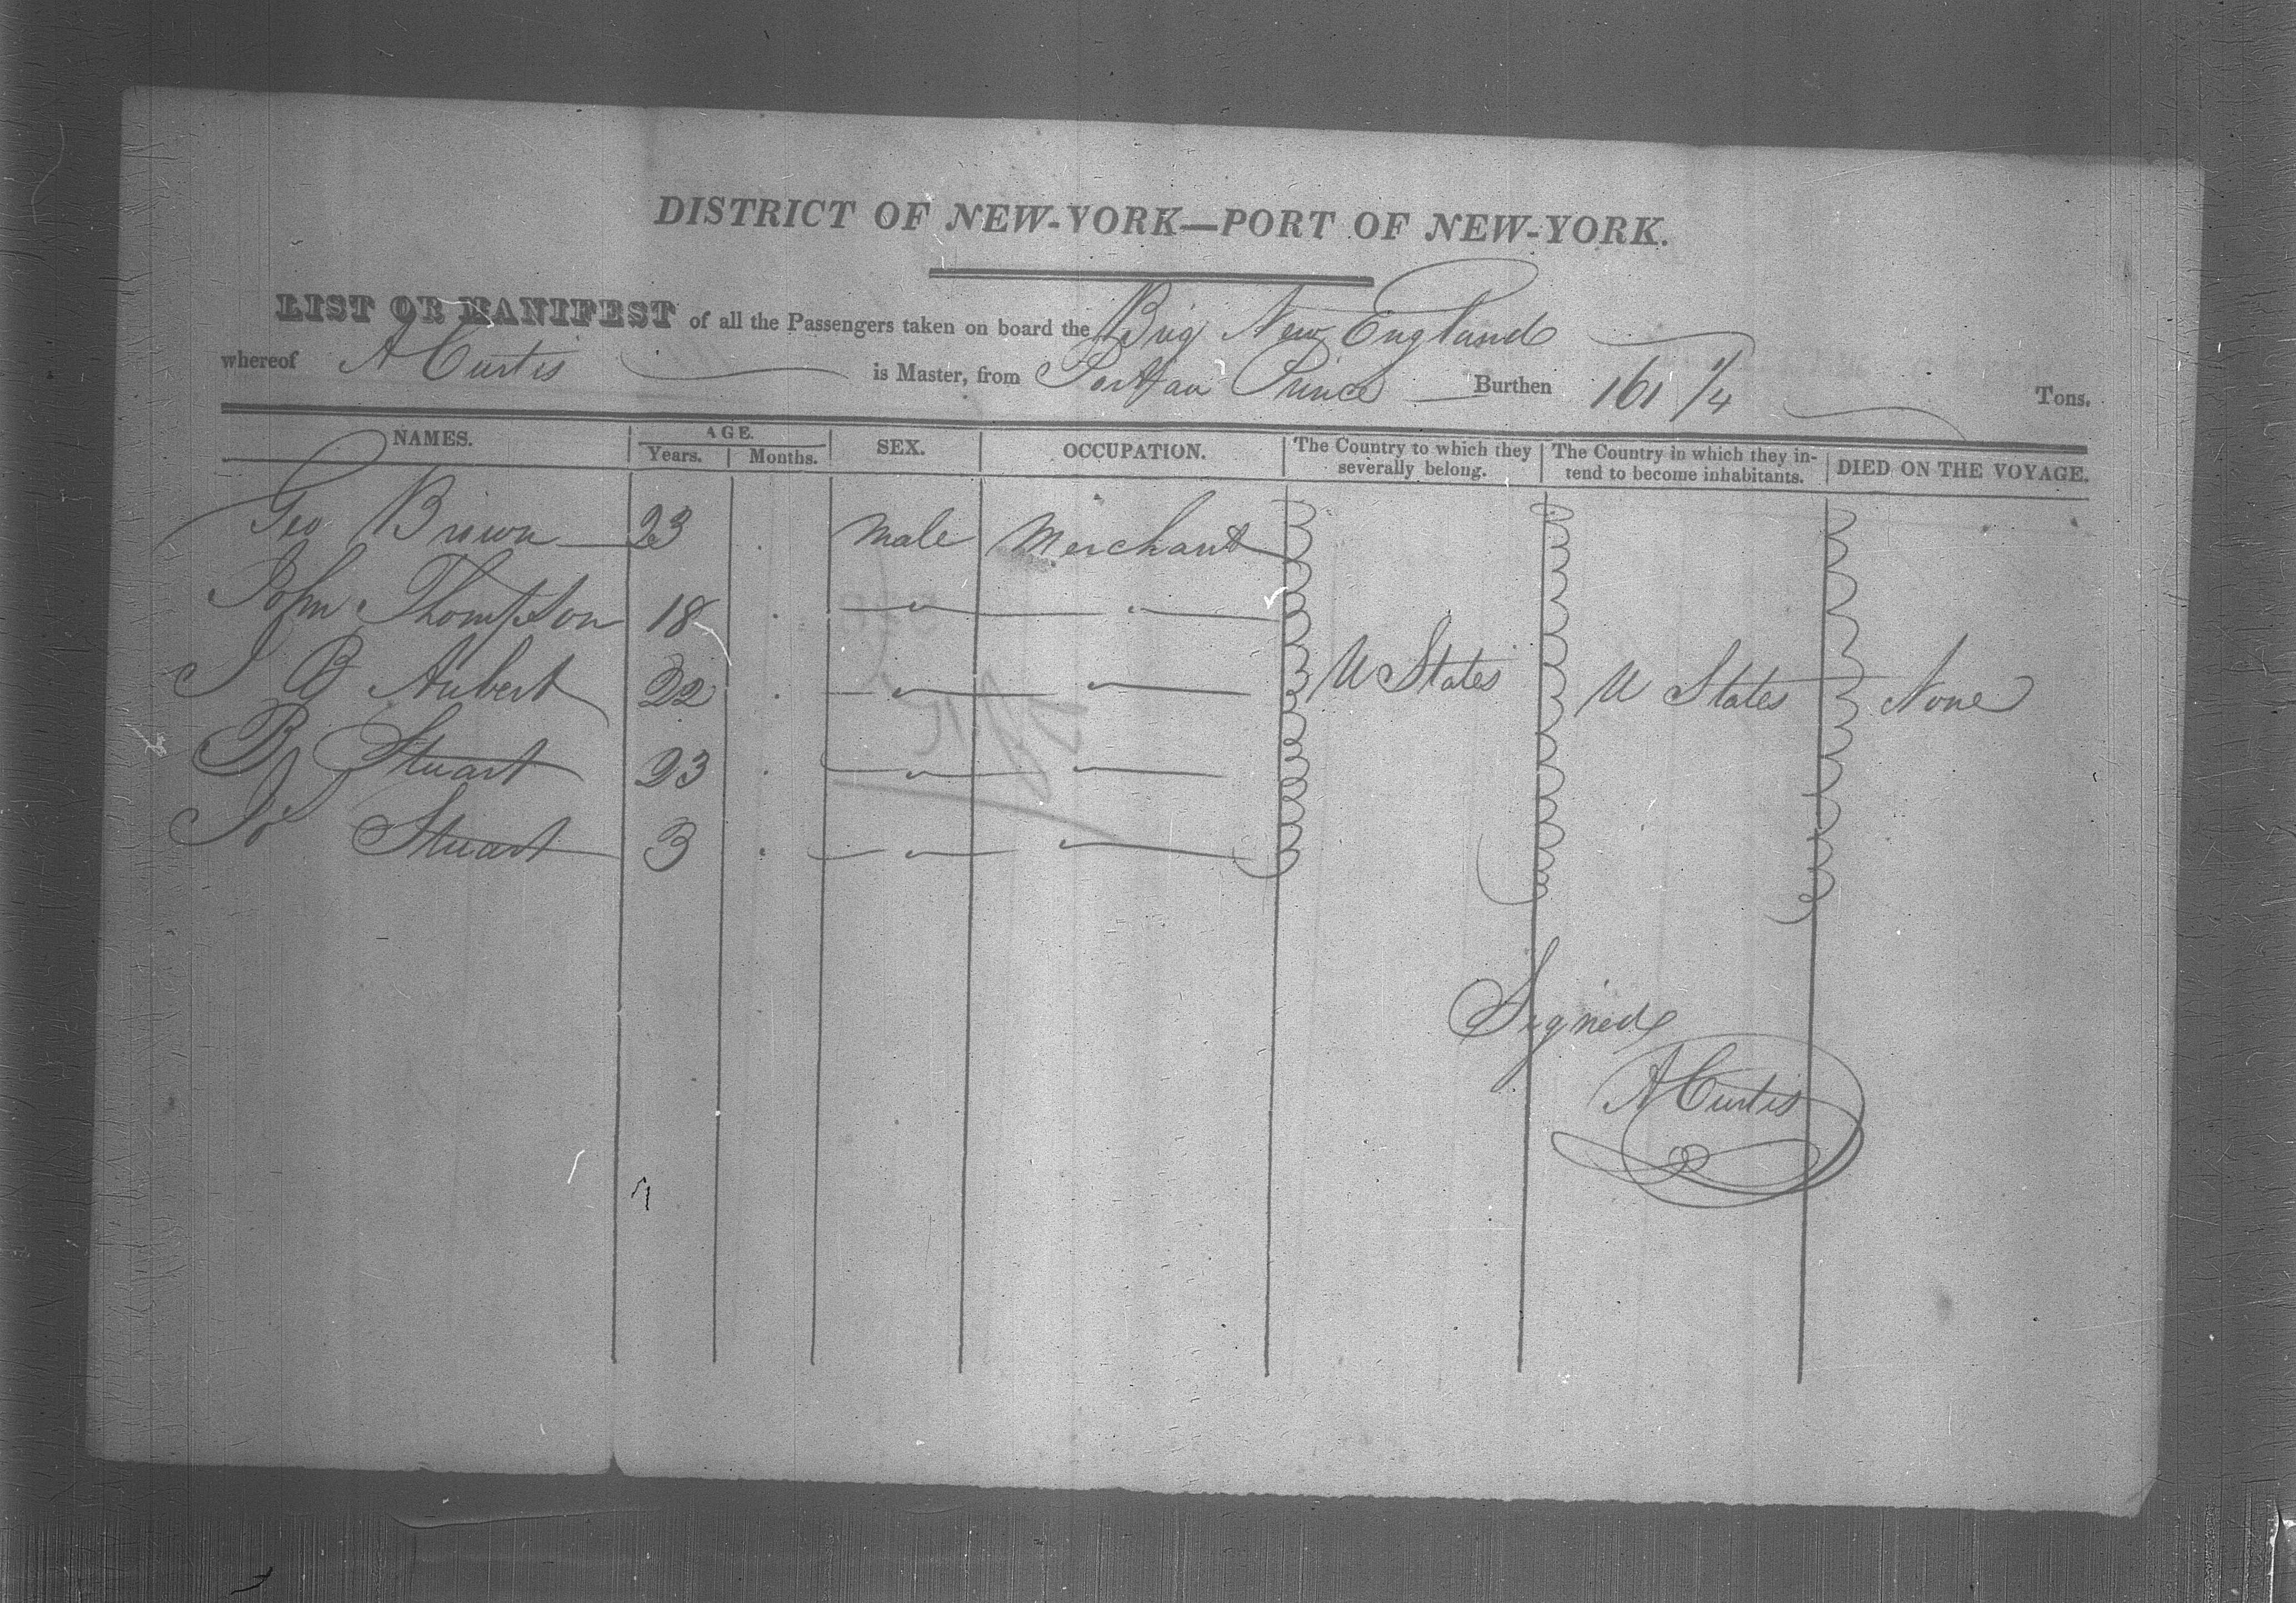 DISTRICT OF NEW-YORK—PORT OF NEW-YORK.
LIST OR MANIFEST of all the Passengers taken on board the Brig New England
whereof A Curtis is Master, from Port au Prince Burthen 161 1/4 Tons.
NAMES. AGE. SEX. OCCUPATION. The Country to which they severally belong. The Country in which they in- DIED ON THE VOYAGE.
Years. Months. tend to become inhabitants.
Geo Brown 23 male Merchant
John Thompson 18 " "
J B Aubert 22 " " U States U States None
B Stuart 23 " "
Stuart 3 " "
Signed
A Curtis